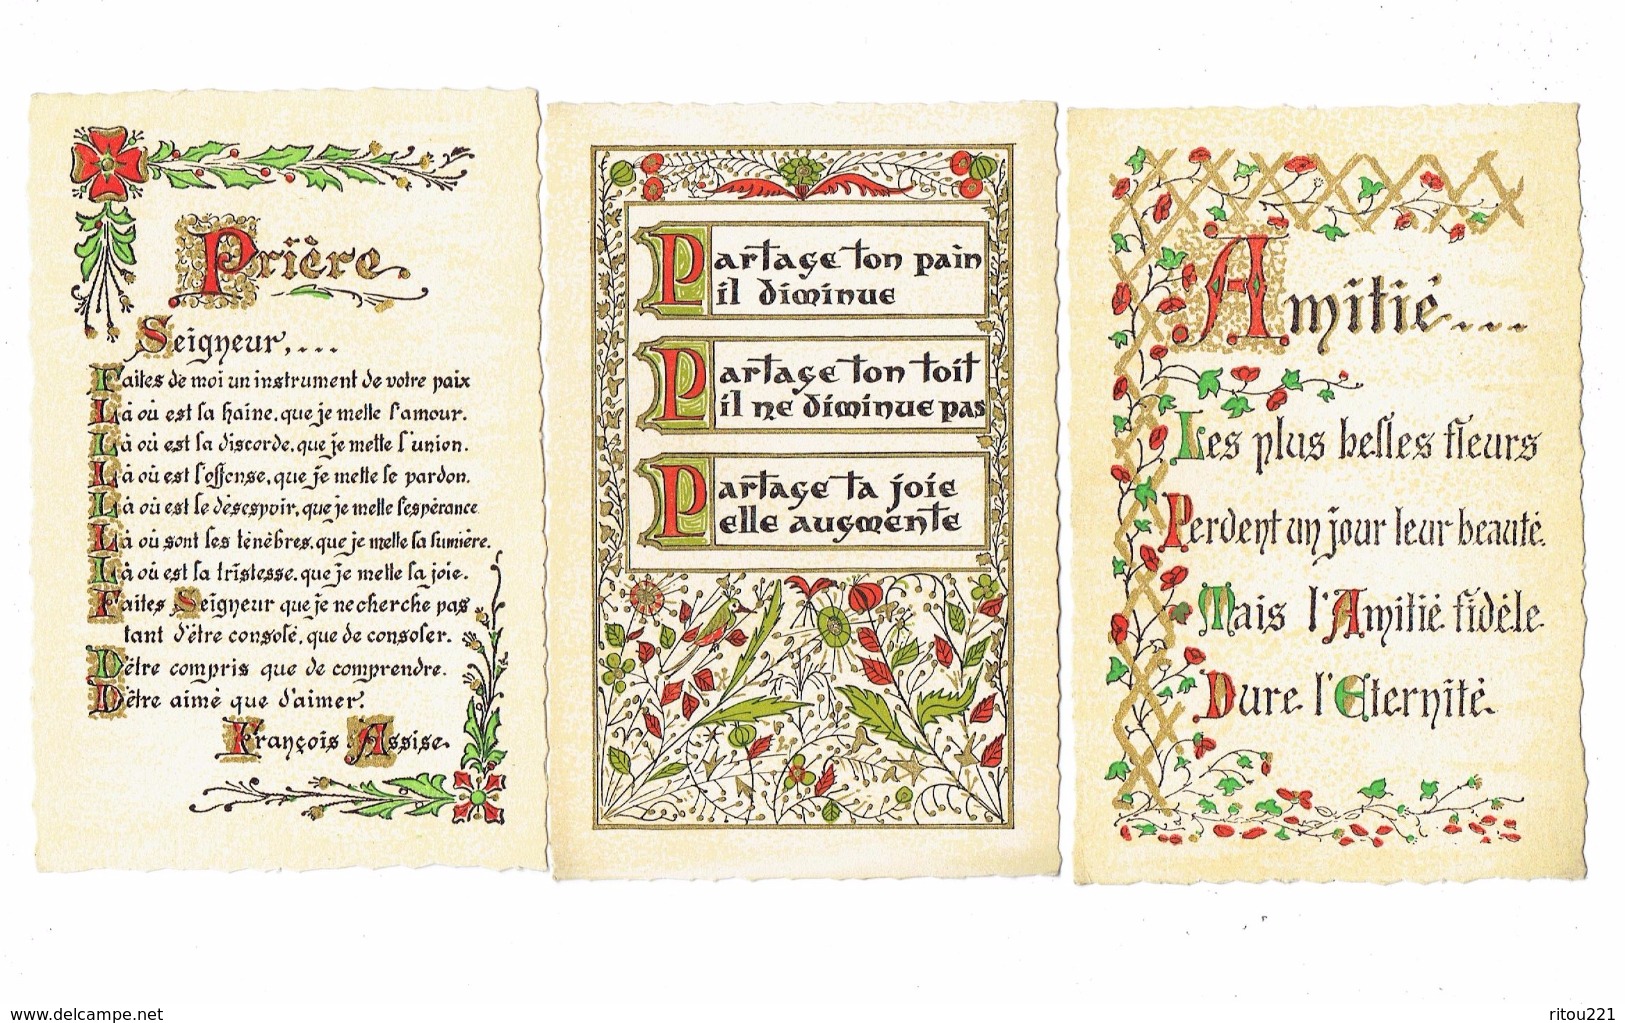 Prière
Seigneur,...
Faites de moi un instrument de votre paix
Là où est la haine, que je mette l'amour.
Là où est la discorde, que je mette l'union.
Là où est l'offense, que je mette le pardon.
Là où est le désespoir, que je mette l'espérance
Là où sont les ténèbres, que je mette la lumière.
Là où est la tristesse, que je mette la joie.
Faites Seigneur que je ne cherche pas
tant d'être consolé, que de consoler.
D'être compris que de comprendre.
D'être aimé que d'aimer.
François Assise.
Partage ton pain
il diminue
Partage ton toit
il ne diminue pas
Partage ta joie
elle augmente
Amitié...
Les plus belles fleurs
Perdent un jour leur beauté.
Mais l'Amitié fidèle
Dure l'Eternité.
www.delcampe.net
ritou221